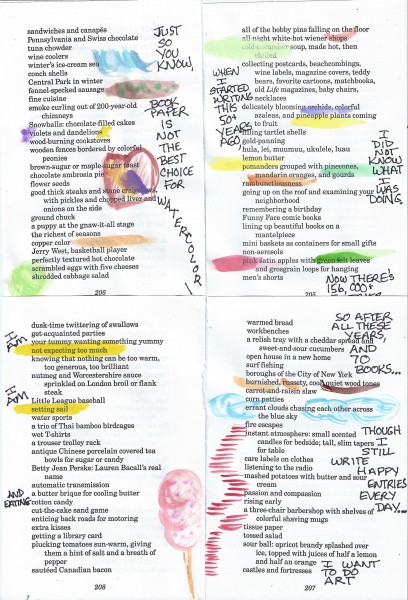 sandwiches and canapés
Pennsylvania and Swiss chocolate
tuna chowder
wine coolers
winter's ice-cream sea
conch shells
Central Park in winter
fennel-spiked sausage
fine cuisine
smoke curling out of 200-year-old
chimneys
Snowballs: chocolate-filled cakes
violets and dandelions
wood-burning cookstoves
wooden fences bordered by colorful
peonies
brown-sugar or maple-sugar toast
chocolate ambrosia pie
flower seeds
good thick steaks and
with pickles and chopped liver and
onions on the side
ground chuck
a puppy at the gnaw-it-all stage
the richest of seasons
copper color
Jerry West, basketball player
perfectly textured hot chocolate
scrambled eggs with five cheeses
shredded cabbage salad
206
JUST
SO
YOU
KNOW,
BOOK
PAPER
IS
NOT
THE
BEST
CHOICE
FOR
WATERCOLOR!
all of the bobby pins falling on the floor
all-night white-hot wiener shops
cold cucumber soup, made hot, then
chilled
collecting postcards, beachcombings,
wine labels, magazine covers, teddy
bears, favorite cartoons, matchbooks,
old Life magazines, baby chairs,
necklaces
delicately blooming orchids, colorful
azaleas, and pineapple plants coming
to fruit
filling tartlet shells
gold-panning
hula, lei, muumuu, ukulele, luau
lemon butter
pomanders grouped with pinecones,
mandarin oranges, and gourds
rambunctiousness
going up on the roof and examining your
neighborhood
remembering a birthday
Funny Face comic books
lining up beautiful books on a
mantelpiece
mini baskets as containers for small gifts
non-aerosols
pink satin apples with green felt leaves
and grosgrain loops for hanging
men's shorts
205
WHEN
I
STARTED
WRITING
THIS
50+
YEARS
AGO
I
DID
NOT
KNOW
WHAT
I
WAS
DOING.
NOW THERE'S
156,000+
dusk-time twittering of swallows
get-acquainted parties
your tummy wanting something yummy
not expecting too much
knowing that nothing can be too warm,
too generous, too brilliant
nutmeg and Worcestershire sauce
sprinkled on London broil or flank
steak
Little League baseball
setting sail
water sports
a trio of Thai bamboo birdcages
wet T-shirts
a trouser trolley rack
antique Chinese porcelain covered tea
bowls for sugar or candy
Betty Jean Perske: Lauren Bacall's real
name
automatic transmission
a butter brique for cooling butter
cotton candy
cut-the-cake sand game
enticing back roads for motoring
extra kisses
getting a library card
plucking tomatoes sun-warm, giving
them a hint of salt and a breath of
pepper
sautéed Canadian bacon
208
I
AM
I
AM
AND
EATING
warmed bread
workbenches
a relish tray with a cheddar spread and
sweet-and-sour cucumbers
open house in a new home
surf fishing
boroughs of the City of New York
burnished, toasty, cool, quiet wood tones
carrot-and-raisin slaw
corn patties
errant clouds chasing each other across
the blue sky
fire escapes
instant atmosphere: small scented
candles for bedside; tall, slim tapers
for table
care labels on clothes
listening to the radio
mashed potatoes with butter and sour
cream
passion and compassion
rising early
a three-chair barbershop with shelves of
colorful shaving mugs
tissue paper
tossed salad
sour ball: apricot brandy splashed over
ice, topped with juices of half a lemon
and half an orange
castles and fortresses
207
SO AFTER
ALL THESE
YEARS,
AND
20
BOOKS...
THOUGH
I
STILL
WRITE
HAPPY
ENTRIES
EVERY
DAY...
I WANT
TO DO
ART